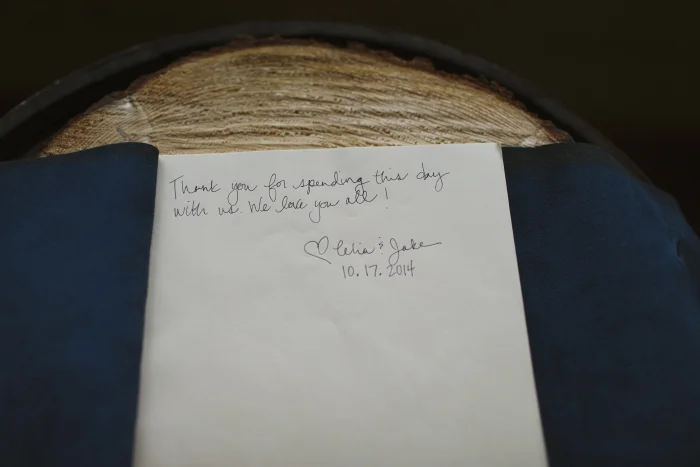 Thank you for spending this day
with us. We love you all!
♡ Celia & Jake
10.17.2014